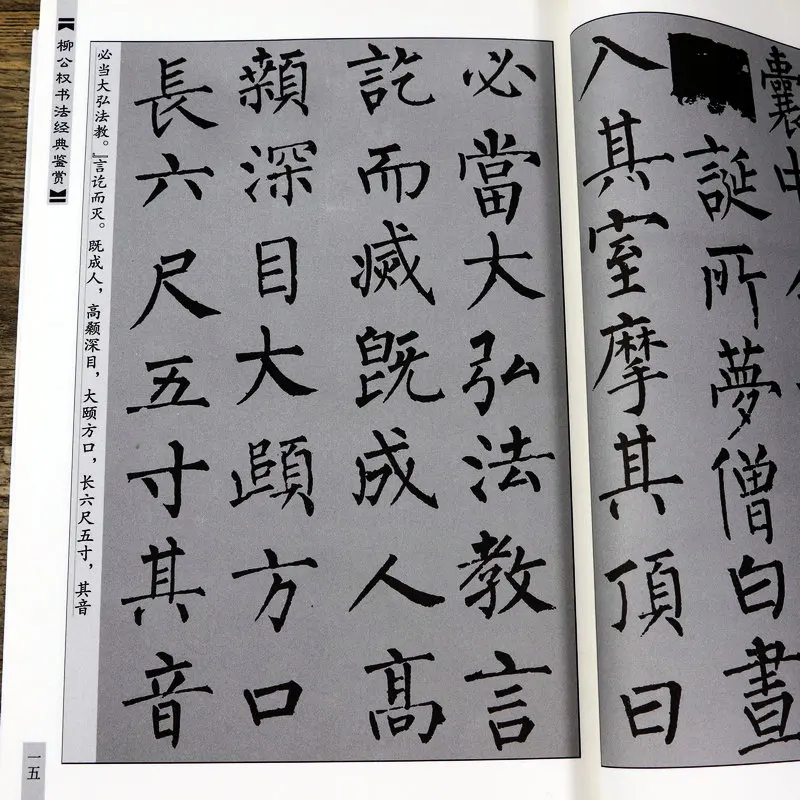 囊中
誕所夢僧白晝
入其室摩其頂曰
必當大弘法教言
訖而滅既成人高
顙深目大頤方口
長六尺五寸其音
必当大弘法教。』言讫而灭。既成人，高颡深目，大颐方口，长六尺五寸，其音
【柳公权书法经典鉴赏】
一五